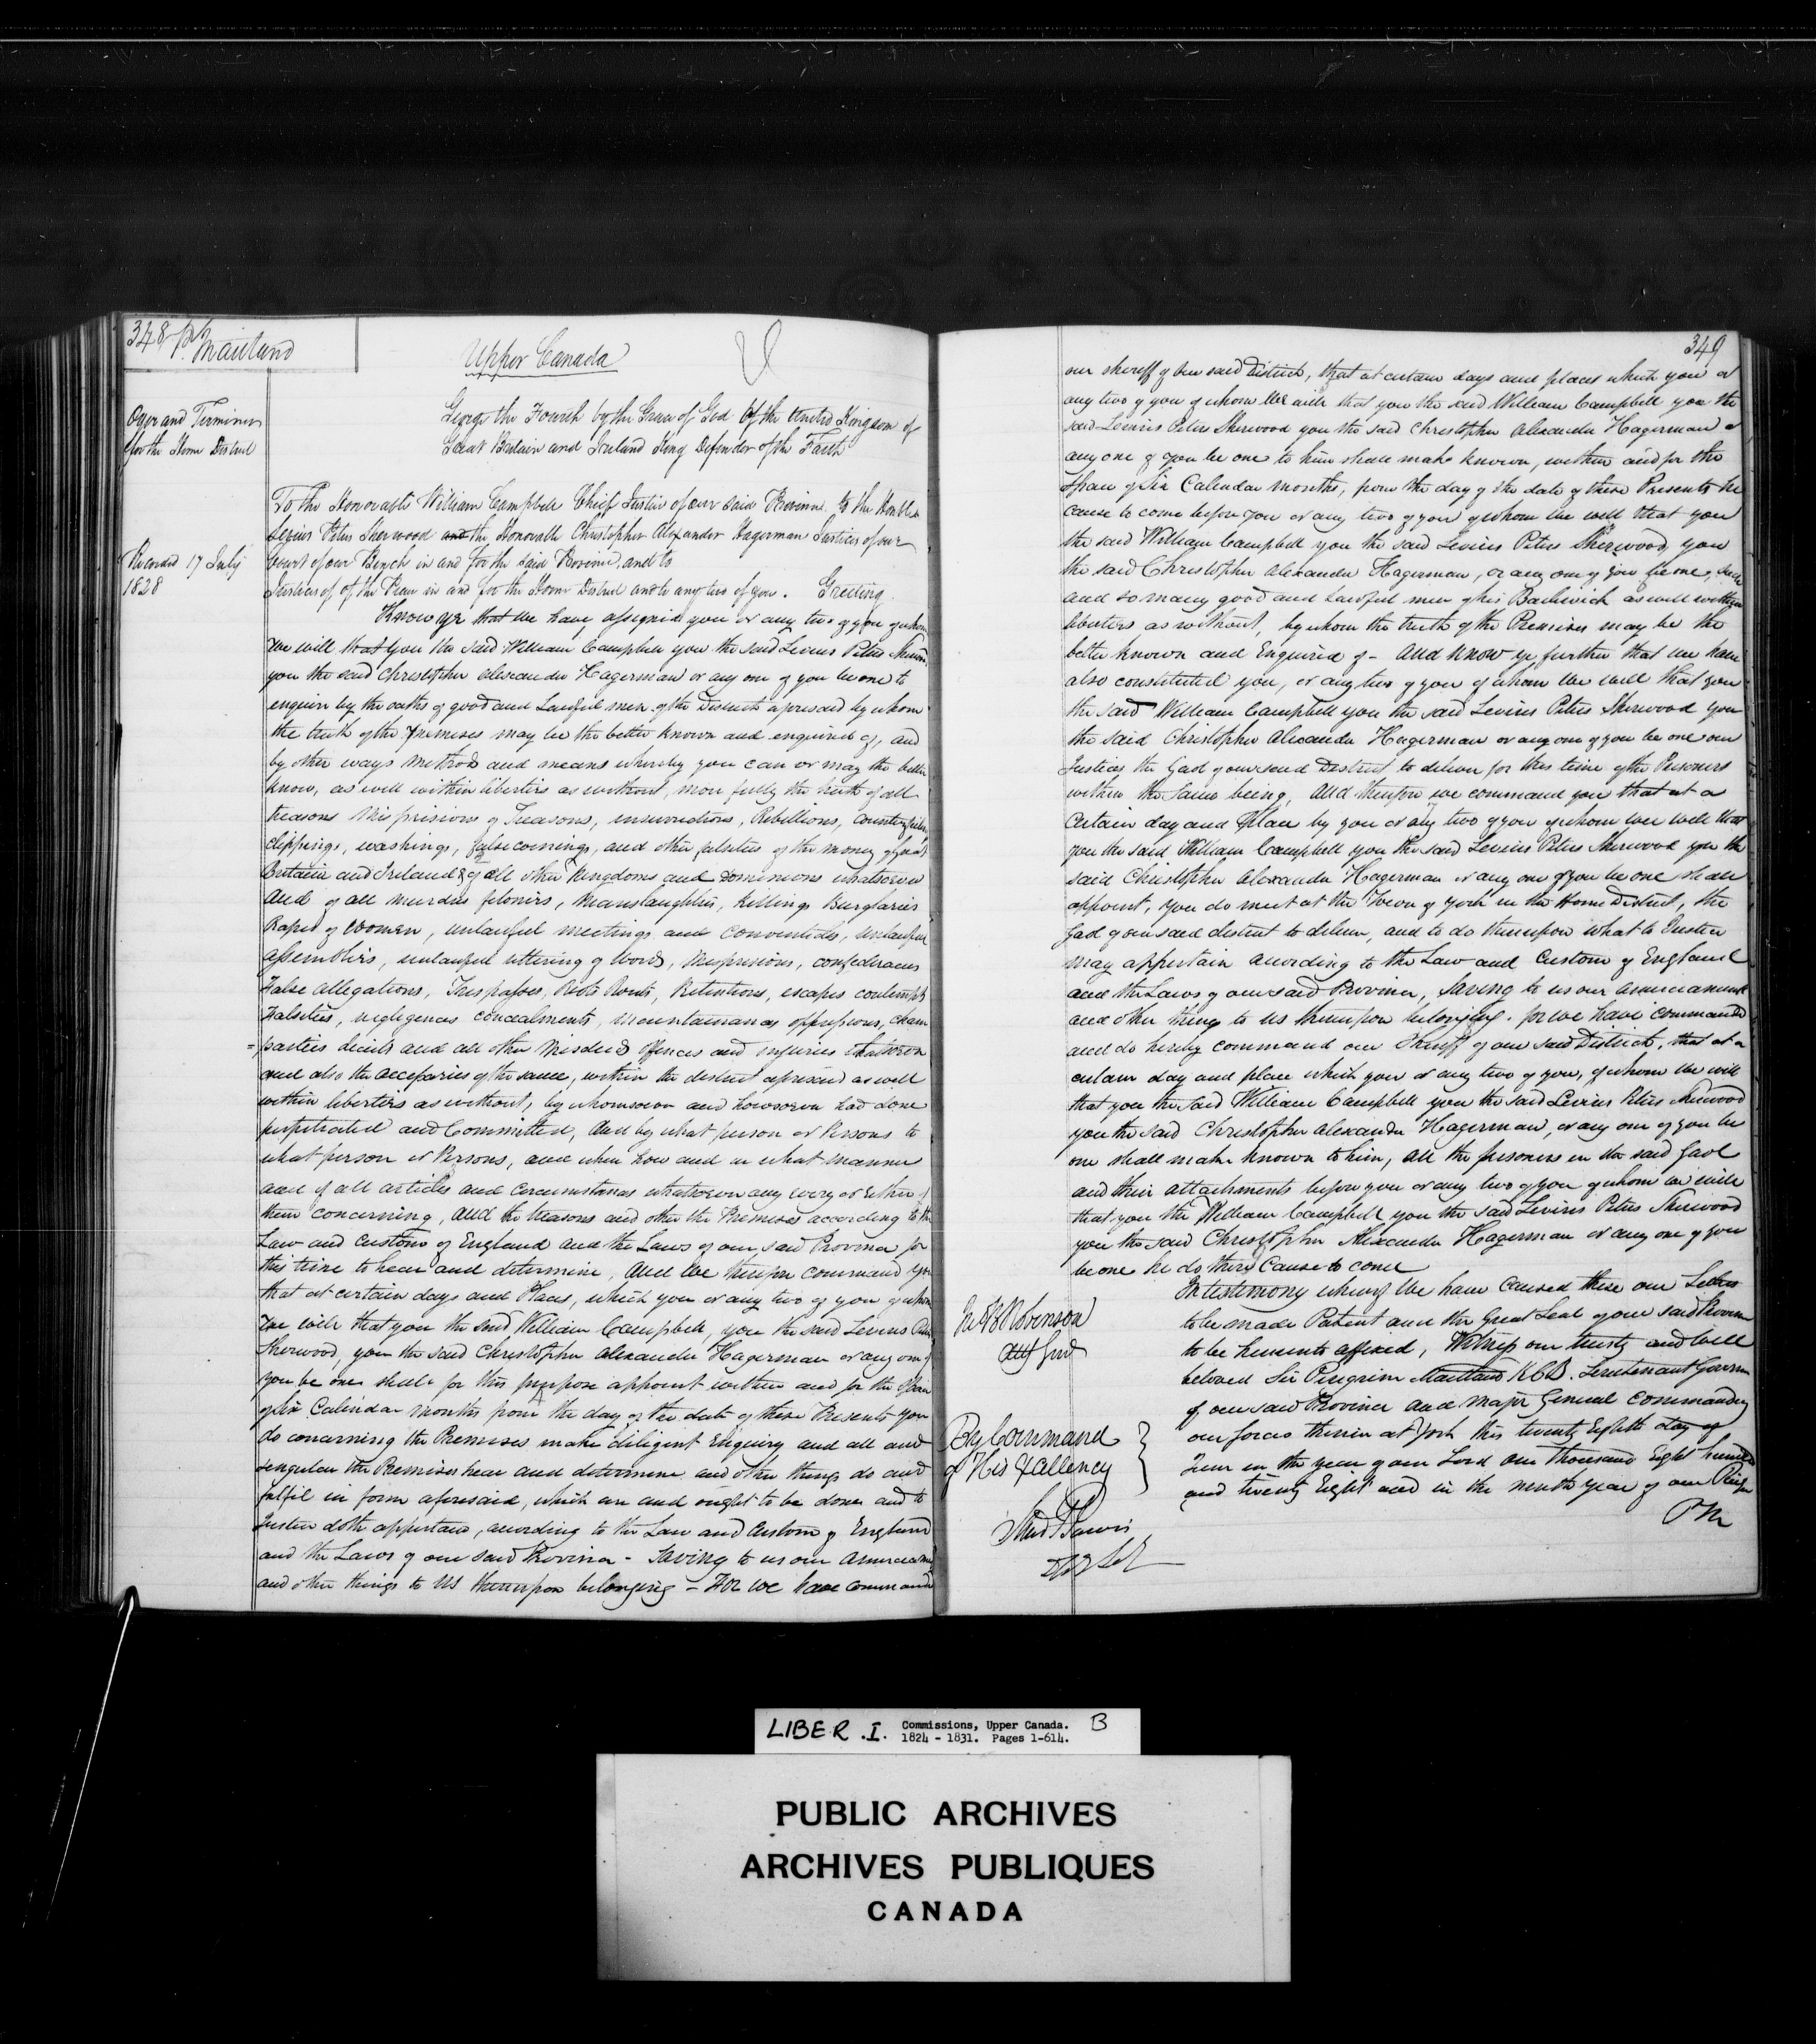 348
P. Maitland
Upper Canada
Oyer and Terminer
for the Home District
George the Fourth by the Grace of God of the United Kingdom of
Great Britain and Ireland King Defender of the Faith
Recorded 17 July
1828
To The Honorable William Campbell Chief Justice of our said Province to the Honble
Levius Peters Sherwood and the Honorable Christopher Alexander Hagerman Justices of our
Court of our Bench in and for the said Province, and to
Justices of of the Peace in and for the Home District and to any two of you. Greeting.
Know ye that We have assigned you or any two of you of whom
We will that you the said William Campbell you the said Levius Peters Sherwood
you the said Christopher Alexander Hagerman or any one of you be one to
enquire by the oaths of good and Lawful men of the District aforesaid by whom
the truth of the Premises may be the better known and enquired of, and
by other ways methods and means whereby you can or may the better
know, as well within liberties as without, more fully the truth of all
treasons Misprisions of Treasons, insurrections, Rebellions, Counterfeitings
clippings, washings, false coinings, and other falsities of the money of Great
Britain and Ireland & of all other Kingdoms and Dominions whatsoever
And of all murders felonies, Manslaughters, Killings Burglaries
Rapes of Women, unlawful meetings and Conventicles, unlawful
Assemblies, unlawful uttering of Words, Misprisions, confederacies
False allegations, Trespasses, Riots Routs, Retentions, escapes contempts
Falsities, negligences concealments, Maintainances oppressions, cham
=parties deceits and all other Misdeeds Offences and injuries whatsoever
and also the accessaries of the same, within the district aforesaid as well
within liberties as without, by whomsoever and howsoever had done
perpetrated and Committed, And by what person or Persons to
what person or Persons, and when how and in what manner
and of all articles and Circumstances whatsoever any every or either of
them concerning, And the treasons and other the Premises according to the
Law and Custom of England and the Laws of our said Province for
this time to hear and determine, And We therefore command you
that at certain days and Places, which you or any two of you of whom
We will that you the said William Campbell, you the said Levius Peters
Sherwood, you the said Christopher Alexander Hagerman or any one of
you be one shall for this purpose appoint within and for the space
of Six Calendar months from the day of the date of these Presents you
do concerning the Premises make diligent Enquiry and all and
singular the Premises hear and determine and other things do and
fulfil in form aforesaid, which are and ought to be done and to
Justice doth appertain, according to the Law and Custom of England
and the Laws of our said Province - Saving to us our Amerciaments
and other things to us thereupon belonging - For we have commanded
349
our sheriff of our said District, that at certain days and places which you or
any two of you of whom We will that you the said William Campbell you the
said Levius Peters Sherwood you the said Christopher Alexander Hagerman or
any one of you be one to him shall make known, within and for the
Space of Six Calendar months, from the day of the date of these Presents he
cause to come before you or any two of you of whom We will that you
the said William Campbell you the said Levius Peters Sherwood, you
the said Christopher Alexander Hagerman, or any one of you be one, such
and so many good and Lawful men of his Bailiwick as well within
liberties as without, by whom the truth of the Premises may be the
better known and Enquired of - And Know ye further that we have
also constituted you, or any two of you of whom We will that you
the said William Campbell you the said Levius Peters Sherwood you
the said Christopher Alexander Hagerman or any one of you be one our
Justices the Gaol of our said District to deliver for this time of the Prisoners
within the same being, And therefore we command you that at a
Certain day and Place by you or any two of you of whom we will that
you the said William Campbell you the said Levius Peters Sherwood you the
said Christopher Alexander Hagerman or any one of you be one shall
appoint, you do meet at the Town of York in the Home District, the
Gaol of our said district to deliver, and to do thereupon what to Justice
may appertain according to the Law and Custom of England
and the Laws of our said Province, Saving to us our Amerciaments
and other things to us thereupon belonging. for We have Commanded
and do hereby command our Sheriff of our said District, that at a
certain day and place which you or any two of you, of whom We will
that you the said William Campbell you the said Levius Peters Sherwood
you the said Christopher Alexander Hagerman, or any one of you be
one shall make known to him, all the prisoners in the said Gaol
and their attachments before you or any two of you of whom we will
that you the William Campbell you the said Levius Peters Sherwood
you the said Christopher Alexander Hagerman or any one of you
be one he do there Cause to come
In testimony whereof We have Caused these our Letters
to be made Patent and the Great Seal of our said Province
to be hereunto affixed, Witness our trusty and well
beloved Sir Peregrine Maitland KCB. Lieutenant Governor
of our said Province and Major General Commanding
our forces therein at York this twenty Eighth day of
June in the year of our Lord One thousand Eight hundred
and twenty Eight and in the ninth year of our Reign
P M
Jno B Robinson
Atty Genl
By Command
of His Excellency
LIBER. I. Commissions, Upper Canada. B
1824 - 1831. Pages 1-614.
PUBLIC ARCHIVES
ARCHIVES PUBLIQUES
CANADA